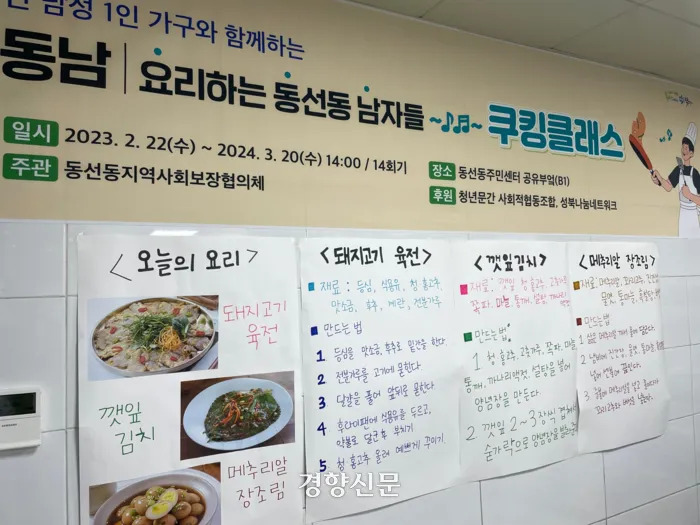 남성 1인 가구와 함께하는
동남 | 요리하는 동선동 남자들 ~♪♬~ 쿠킹클래스
일시 2023. 2. 22(수) ~ 2024. 3. 20(수) 14:00 / 14회기
장소 동선동주민센터 공유부엌(B1)
주관 동선동지역사회보장협의체
후원 청년문간 사회적협동조합, 성북나눔네트워크
<오늘의 요리>
돼지고기
육전
깻잎
김치
메추리알
장조림
<돼지고기 육전>
재료 : 등심, 식용유, 청 홍고추,
맛소금, 후추, 계란, 전분가루
만드는 법
1 등심을 맛소금, 후추로 밑간을 한다.
2 전분가루를 고기에 묻힌다.
3 달걀을 풀어 앞뒤로 묻힌다.
4 후라이팬에 식용유를 두르고,
약불로 달군 후 부치기
5 청 홍고추 올려 예쁘게 꾸미기
<깻잎김치>
재료: 깻잎, 청 홍고추, 고춧가루,
쪽파, 마늘, 통깨, 설탕, 까나리
액젓
만드는 법
1 청 홍고추, 고춧가루, 쪽파, 마늘
통깨, 까나리액젓, 설탕을 넣어
양념장을 만든다
2 깻잎 2~3장씩 겹쳐
숟가락으로 양념장을
<메추리알 장조림>
재료: 메추리알, 꽈리고추, 진간장
물엿, 통마늘,
만드는 법
SAMSUNG
경향신문